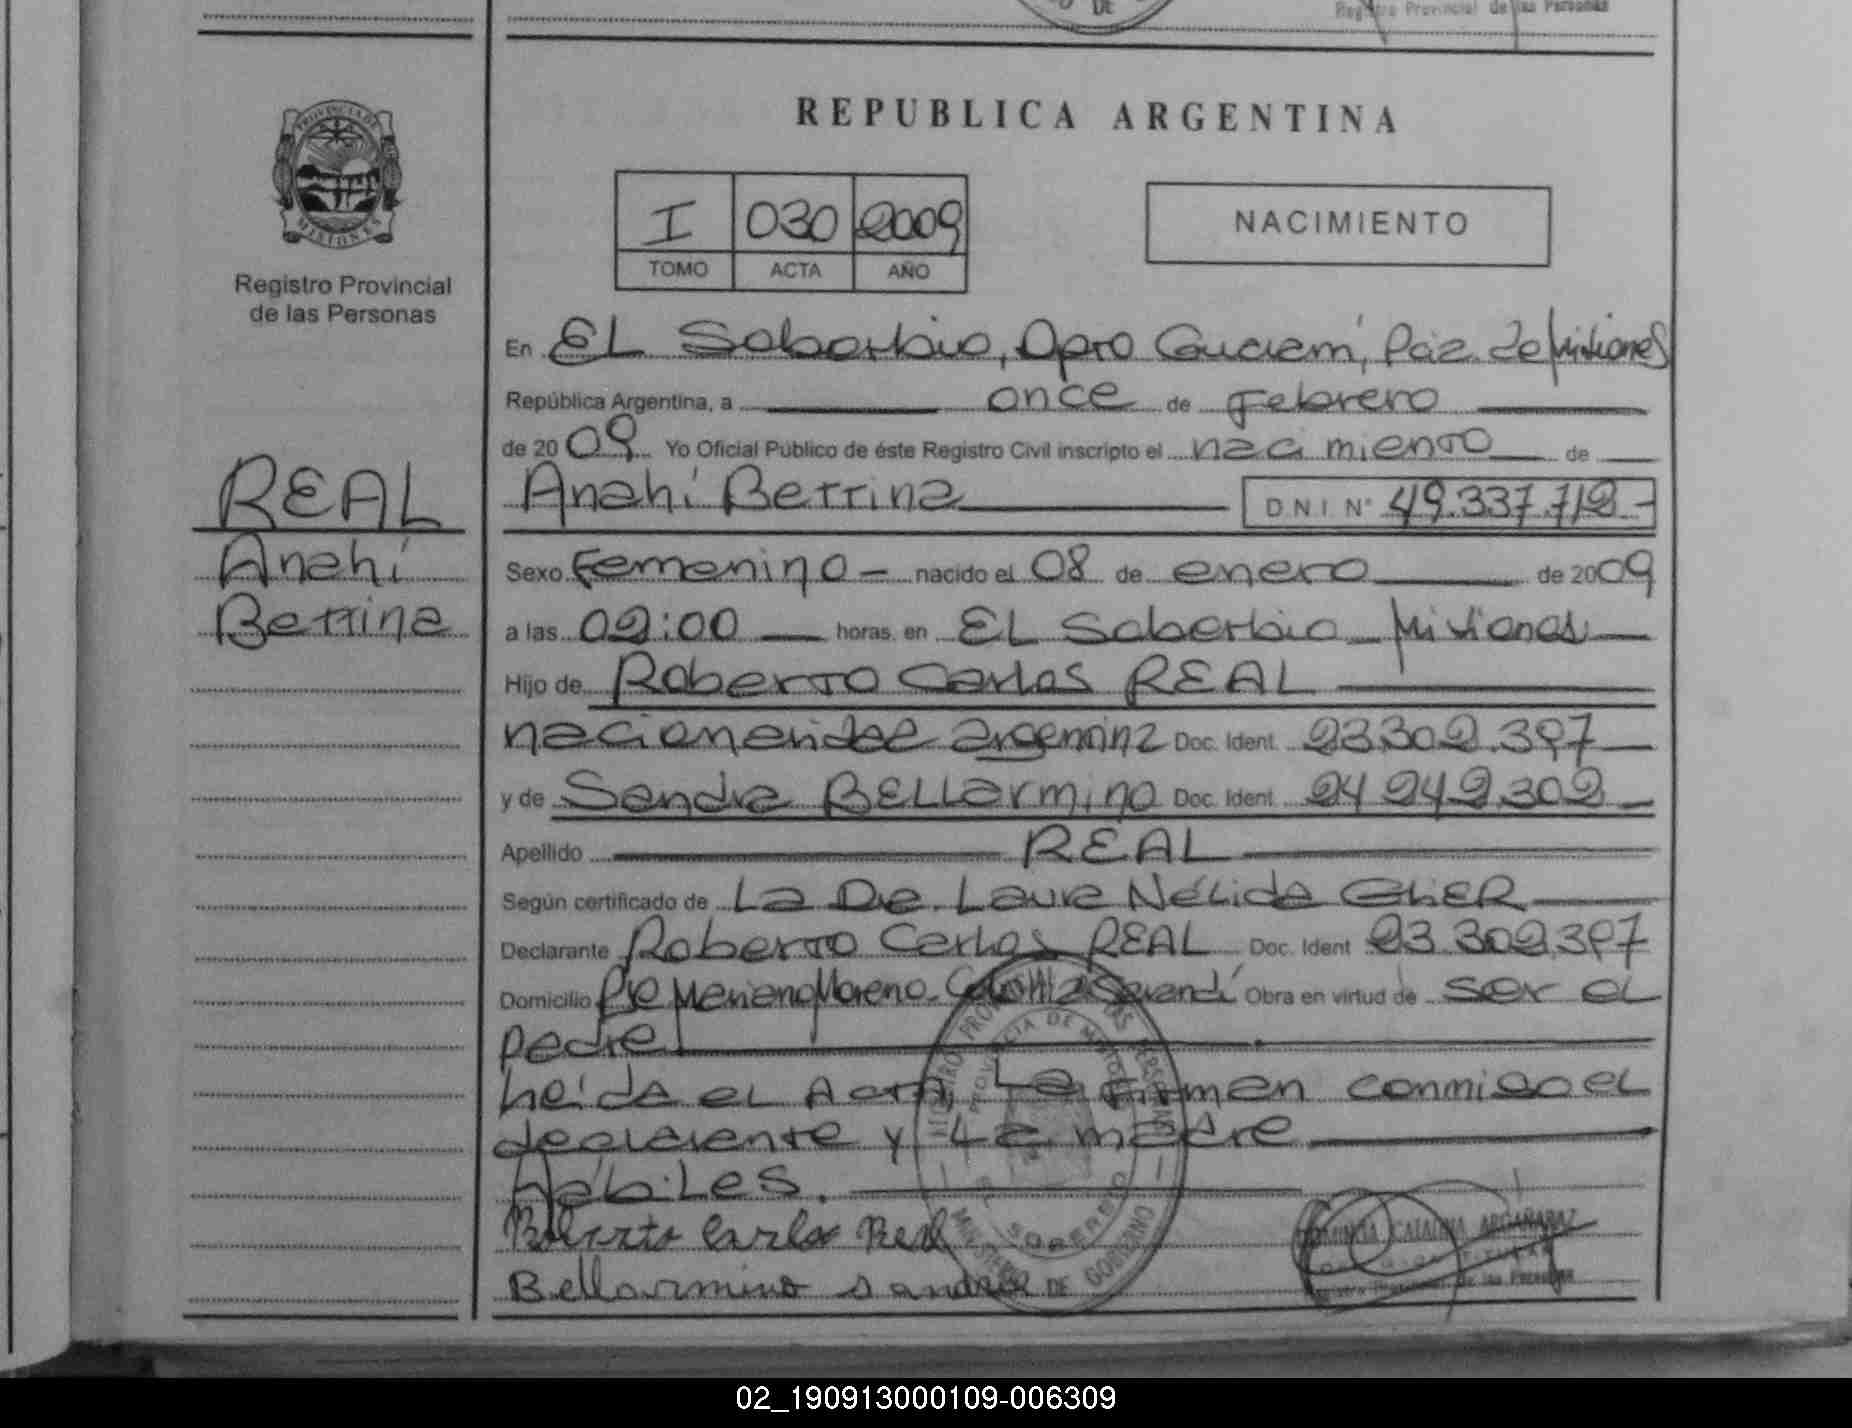 DE
Registro Provincial de las Personas
REPUBLICA ARGENTINA
PROVINCIA DE
MISIONES
Registro Provincial
de las Personas
I 030 2009
TOMO ACTA AÑO
NACIMIENTO
En EL Soberbio, Dpto Guaraní, Pcia. de Misiones
República Argentina, a once de Febrero
de 2009 Yo Oficial Público de éste Registro Civil inscripto el nacimiento de
Anahí Bettina D N I Nº 49.337.712-
REAL
Anahí
Bettina
Sexo Femenino - nacido el 08 de enero de 2009
a las 02:00 horas. en EL Soberbio Misiones
Hijo de Roberto Carlos REAL
nacionalidad argentina Doc. Ident. 23.302.397
y de Sandra BELLarmino Doc. Ident. 24.242.302
Apellido REAL
Según certificado de La Dra. Laura Nélida
Declarante Roberto Carlos REAL Doc. Ident 23.302.397
Domicilio Mariano Moreno Colonia Sarandí Obra en virtud de ser el
padre
Leída el Acta, La Firman conmigo el
declarante y La madre
Hábiles.
Roberto Carlos Real
Bellarmino Sandra
REGISTRO PROVINCIAL DE LAS PERSONAS
PROVINCIA DE MISIONES
EL SOBERBIO
MINISTERIO DE GOBIERNO
CATALINA ARGAÑARAZ
Registro Provincial de las Personas
02_190913000109-006309